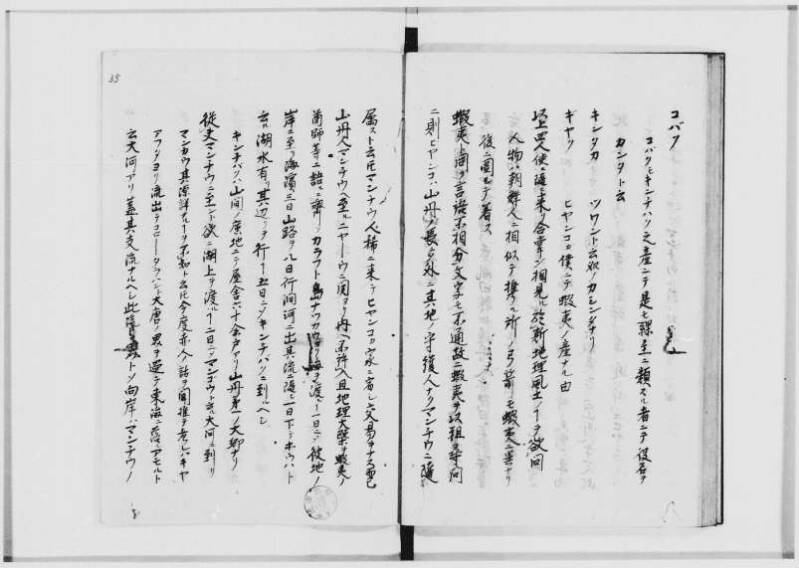 コバク
コバクモキンチハツ之産ニテ是モ裸至ニ類スル者ニテ役名ヲ
カンタト云
キンタカ ツワント云処ノカランダナリ
ギヤツ ヒヤンコカ僕ニテ蝦夷ノ産ナル由
四人使ニ逢ニ来リ合幸ニ相見ル於斯地理風土ノ ヲ欲問
人物ハ朝鮮人ニ相似テ携ル所ノ弓箭モ蝦夷ニ異ナリ
後ニ図シテ著ス
蝦夷ト同ク言語不相分文字モ不通故ニ蝦夷ヲ以粗尋問
ニ則ヒヤンコハ山丹ノ長ノ外ニ其地ノ守護人ナリマンチウニ随
属スト云氏マンチウ人稀ニ来テヒヤンコカ家ニ宿シ交易ヲナス而已
山丹人マンチウヘ至ルニヤーウニ関ヨリ内ヘ不許入且地理大槩ヲ蝦夷ノ
ニ詰ニ カラフト島ナツカウヨリ海ヲ渡 一日ニシテ彼地ノ
岸ニ至リ海濱三日山路ヲ八日行河ニ出其流ニ随ニ一日下テホウハト
云湖水有リ其辺ヲ行 五日ニシテキンチハツニ到ルヘシ
キンチハツハ山間ノ廣地ニテ屋舎六十余戸アリ山丹第一ノ大郷ナリ
従夫マンチウニ至ント欲ニ湖上ヲ渡 十二日ニシテマンゴウト云大河ニ到リ
マンカウ其源詳ナ 不知ト云氏今度赤人ノ話ヲ聞推テ考レハキヤ
アフタヨリ流出テ 大唐ノ界ヲ歴テ東海ニ落アモルト
云大河アリ蓋其支流ナルヘシ此 トノ向岸ハマンチウノ